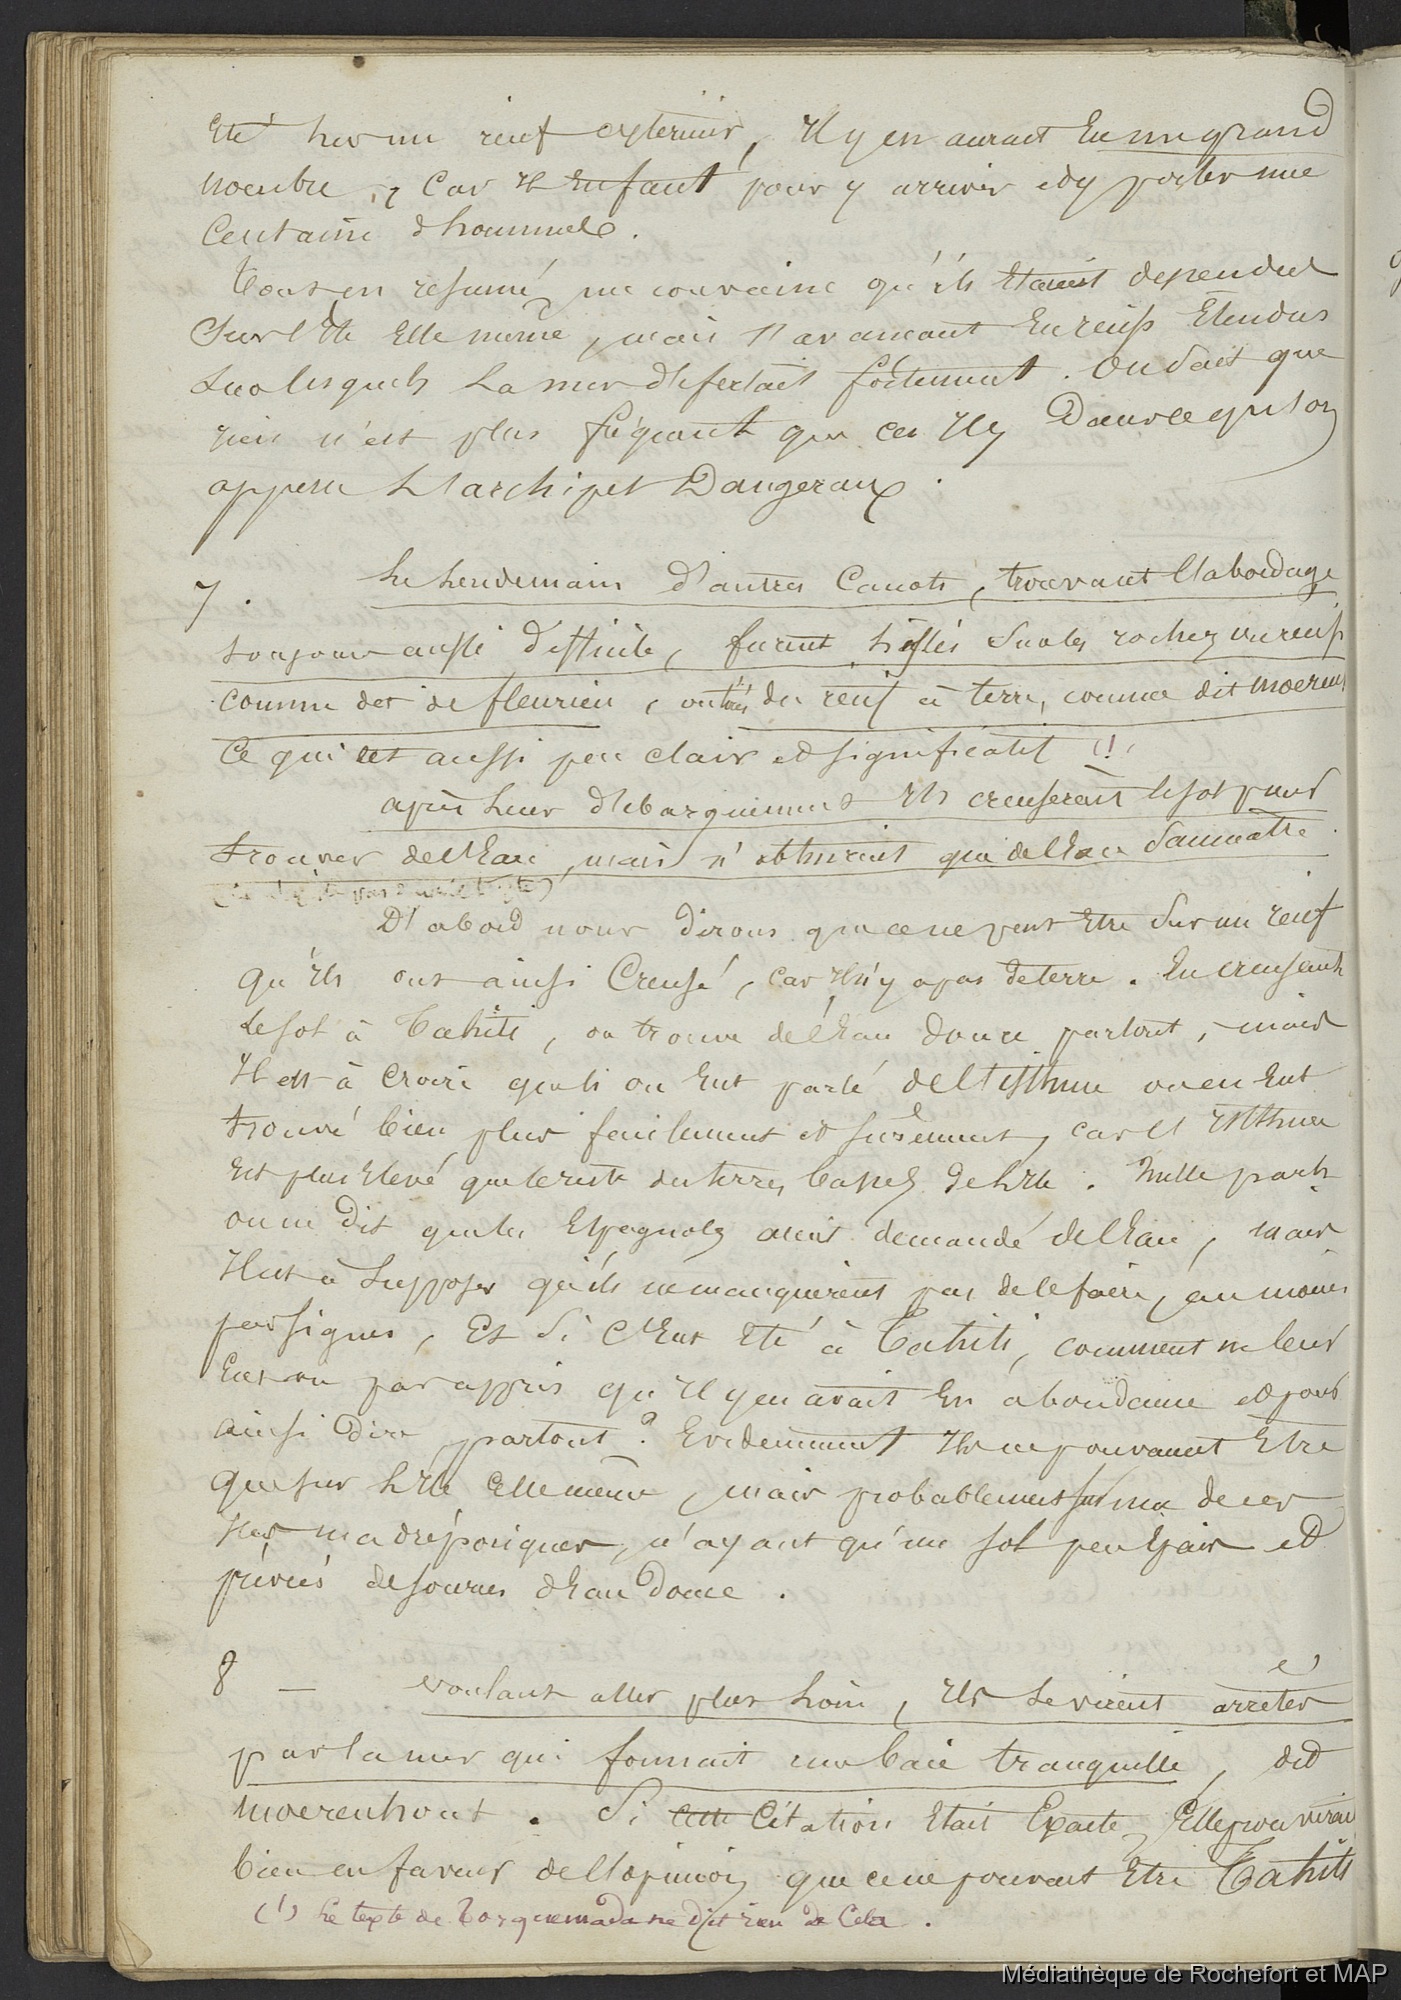 Eté sur un récif exterieur, Il y en aurait Eu un grand
nombre, car Il En faut pour y arriver et y porter une
Centaine d'hommes.
Tout en résumé me convainc qu'ils Etaient descendus
sur l'Ile Elle même, mais s'avançant En récifs Etendus
sur lesquels La mer déferlait fortement. On sait que
rien n'est plus fréquent que ces Iles Dans ce qu'on
appelle L'archipel Dangereux.
7. Le Lendemain d'autres Canots, trouvant l'abordage
toujours aussi difficile, furent hissés sur les rochers ou récifs
comme dit de fleurieu, ou tirés du récif à terre, comme dit moeren
Ce qui est aussi peu clair et significatif (1)
après Leur débarquement Ils creusèrent le sol pour
trouver de l'Eau, mais n'obtinrent que de l'Eau saumatre.
D'abord nous dirons que ce ne peut Etre sur un récif
qu'Ils ont ainsi Creusé, car Il n'y a pas de terre. En creusant
le sol à Tahiti, on trouve de l'Eau douce partout, mais
Il est à croire que si on Eut parlé de l'isthme on en Eut
trouvé bien plus facilement et surement, car l'Isthme
est plus Elevé que le reste des terres basses de L'Ile. Nulle part
on ne dit que les Espagnols aient demandé de l'Eau, mais
Il est à supposer qu'ils ne manquèrent pas de le faire, au moins
par signes, Et si c'Eut Eté à Tahiti, comment ne leur
Eut on pas appris qu'Il y en avait En abondance et pour
ainsi dire partout? Evidemment Ils ne pouvaient Etre
que sur L'Ile Elle même, mais probablement sur une de ces
Iles madréporiques, n'ayant qu'un sol peu Epais et
privées de sources d'Eau Douce.
8 — voulant aller plus Loin, Ils se virent arrêtés
par la mer qui formait une baie tranquille, dit
moerenhout. Si cette Citation Etait Exacte, Elle prouverait
bien en faveur de l'opinion que ce ne pouvait Etre Tahiti
(1) Le texte de Torquemada ne dit rien de Cela.
Médiathèque de Rochefort et MAP